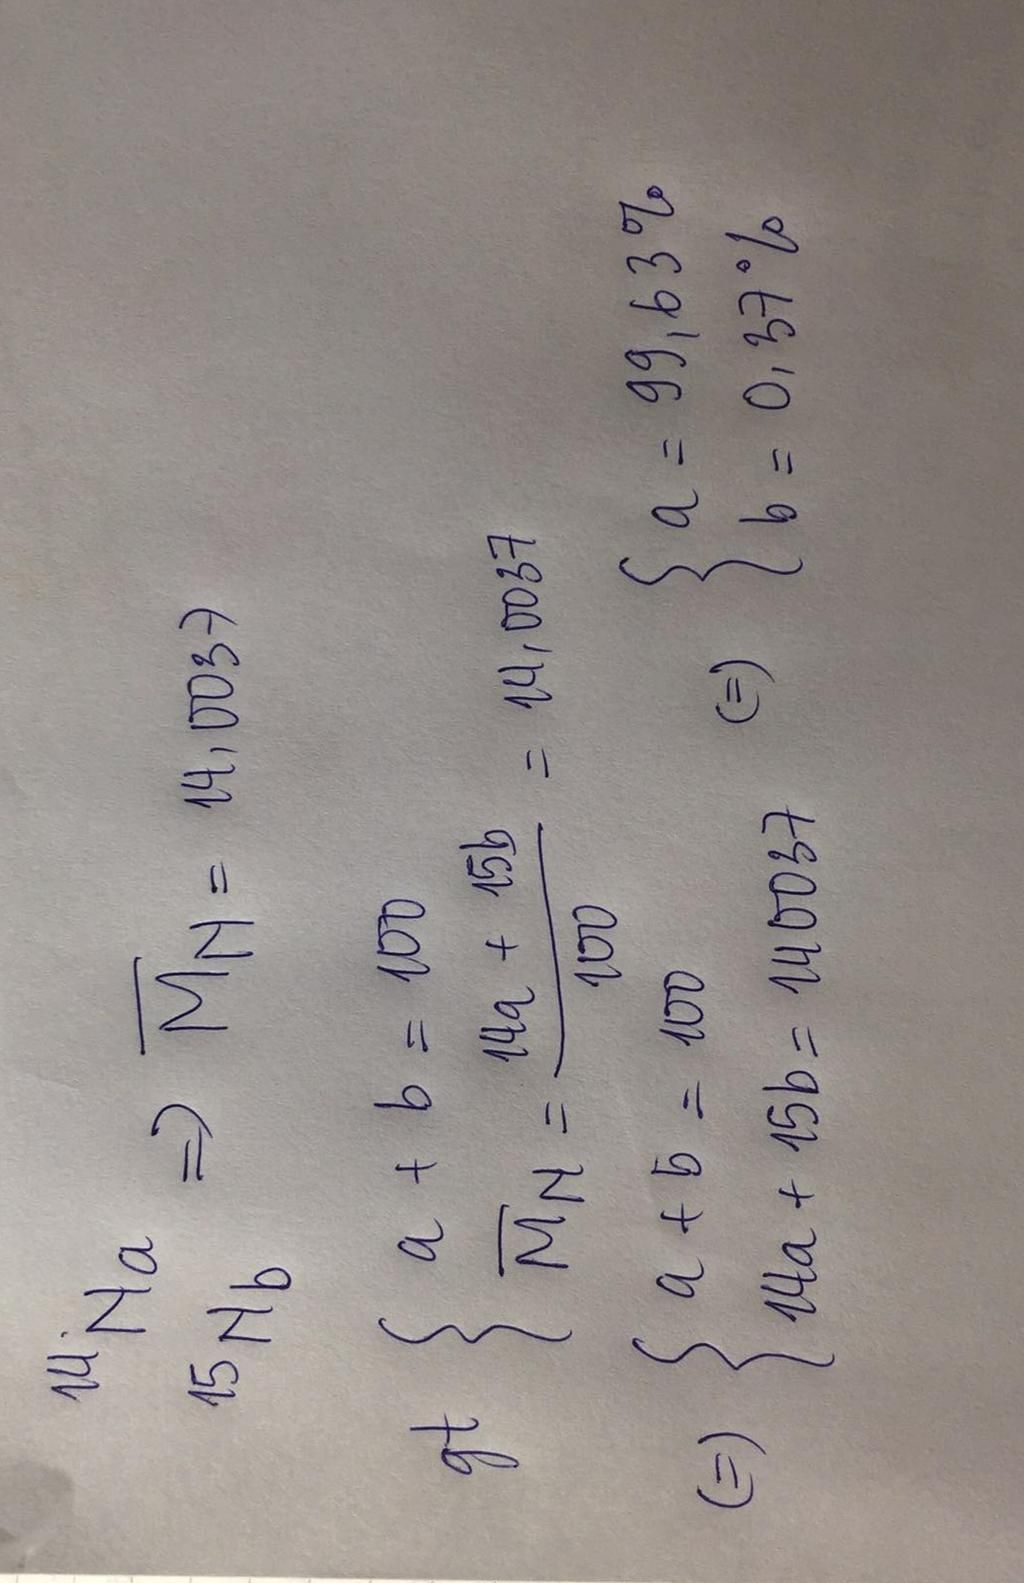 ¹⁴Na
¹⁵Nb => M̅N = 14,0037
gt { a + b = 100
M̅N = (14a + 15b)/100 = 14,0037
(=) { a + b = 100
14a + 15b = 140037
(=) { a = 99,63%
b = 0,37%